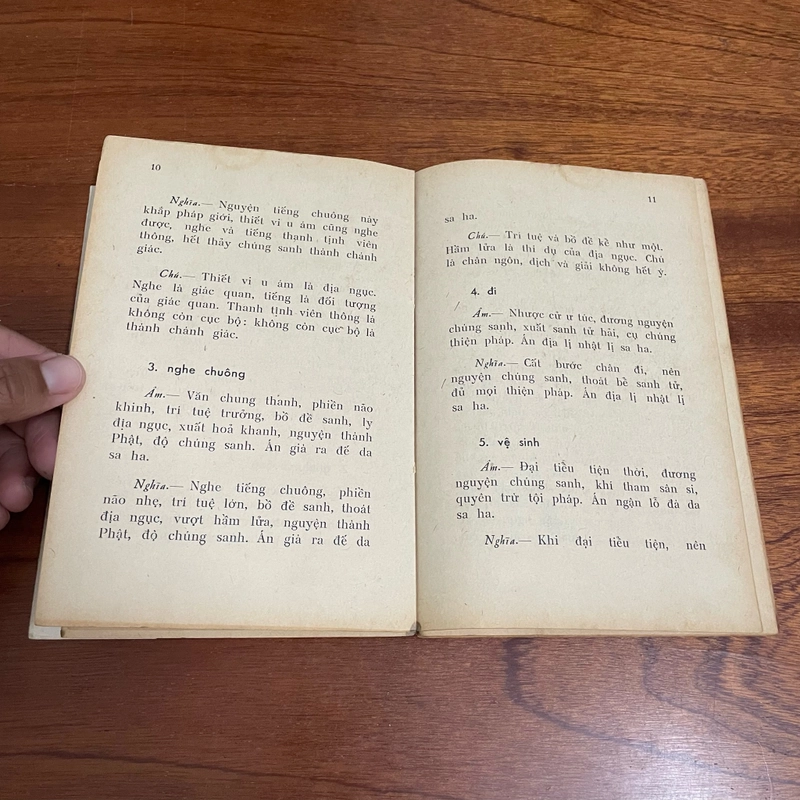 10
Nghĩa.— Nguyện tiếng chuông này
khắp pháp giới, thiết vi u ám cũng nghe
được, nghe và tiếng thanh tịnh viên
thông, hết thảy chúng sanh thành chánh
giác.
Chú.— Thiết vi u ám là địa ngục.
Nghe là giác quan, tiếng là đối tượng
của giác quan. Thanh tịnh viên thông là
không còn cục bộ: không còn cục bộ là
thành chánh giác.
3. nghe chuông
Âm.— Văn chung thanh, phiền não
khinh, trí tuệ trưởng, bồ đề sanh, ly
địa ngục, xuất hoả khanh, nguyện thành
Phật, độ chúng sanh. Án già ra đế da
sa ha.
Nghĩa.— Nghe tiếng chuông, phiền
não nhẹ, trí tuệ lớn, bồ đề sanh, thoát
địa ngục, vượt hầm lửa, nguyện thành
Phật, độ chúng sanh. Án già ra đế da
11
sa ha.
Chú.— Trí tuệ và bồ đề kể như một.
Hầm lửa là thí dụ của địa ngục. Chú
là chân ngôn, dịch và giải không hết ý.
4. đi
Âm.— Nhược cử ư túc, đương nguyện
chúng sanh, xuất sanh tử hải, cụ chúng
thiện pháp. Án địa lị nhật lị sa ha.
Nghĩa.— Cất bước chân đi, nên
nguyện chúng sanh, thoát bể sanh tử,
đủ mọi thiện pháp. Án địa lị nhật lị
sa ha.
5. vệ sinh
Âm.— Đại tiểu tiện thời, đương
nguyện chúng sanh, khí tham sân si,
quyên trừ tội pháp. Án ngận lỗ đà da
sa ha.
Nghĩa.— Khi đại tiểu tiện, nên